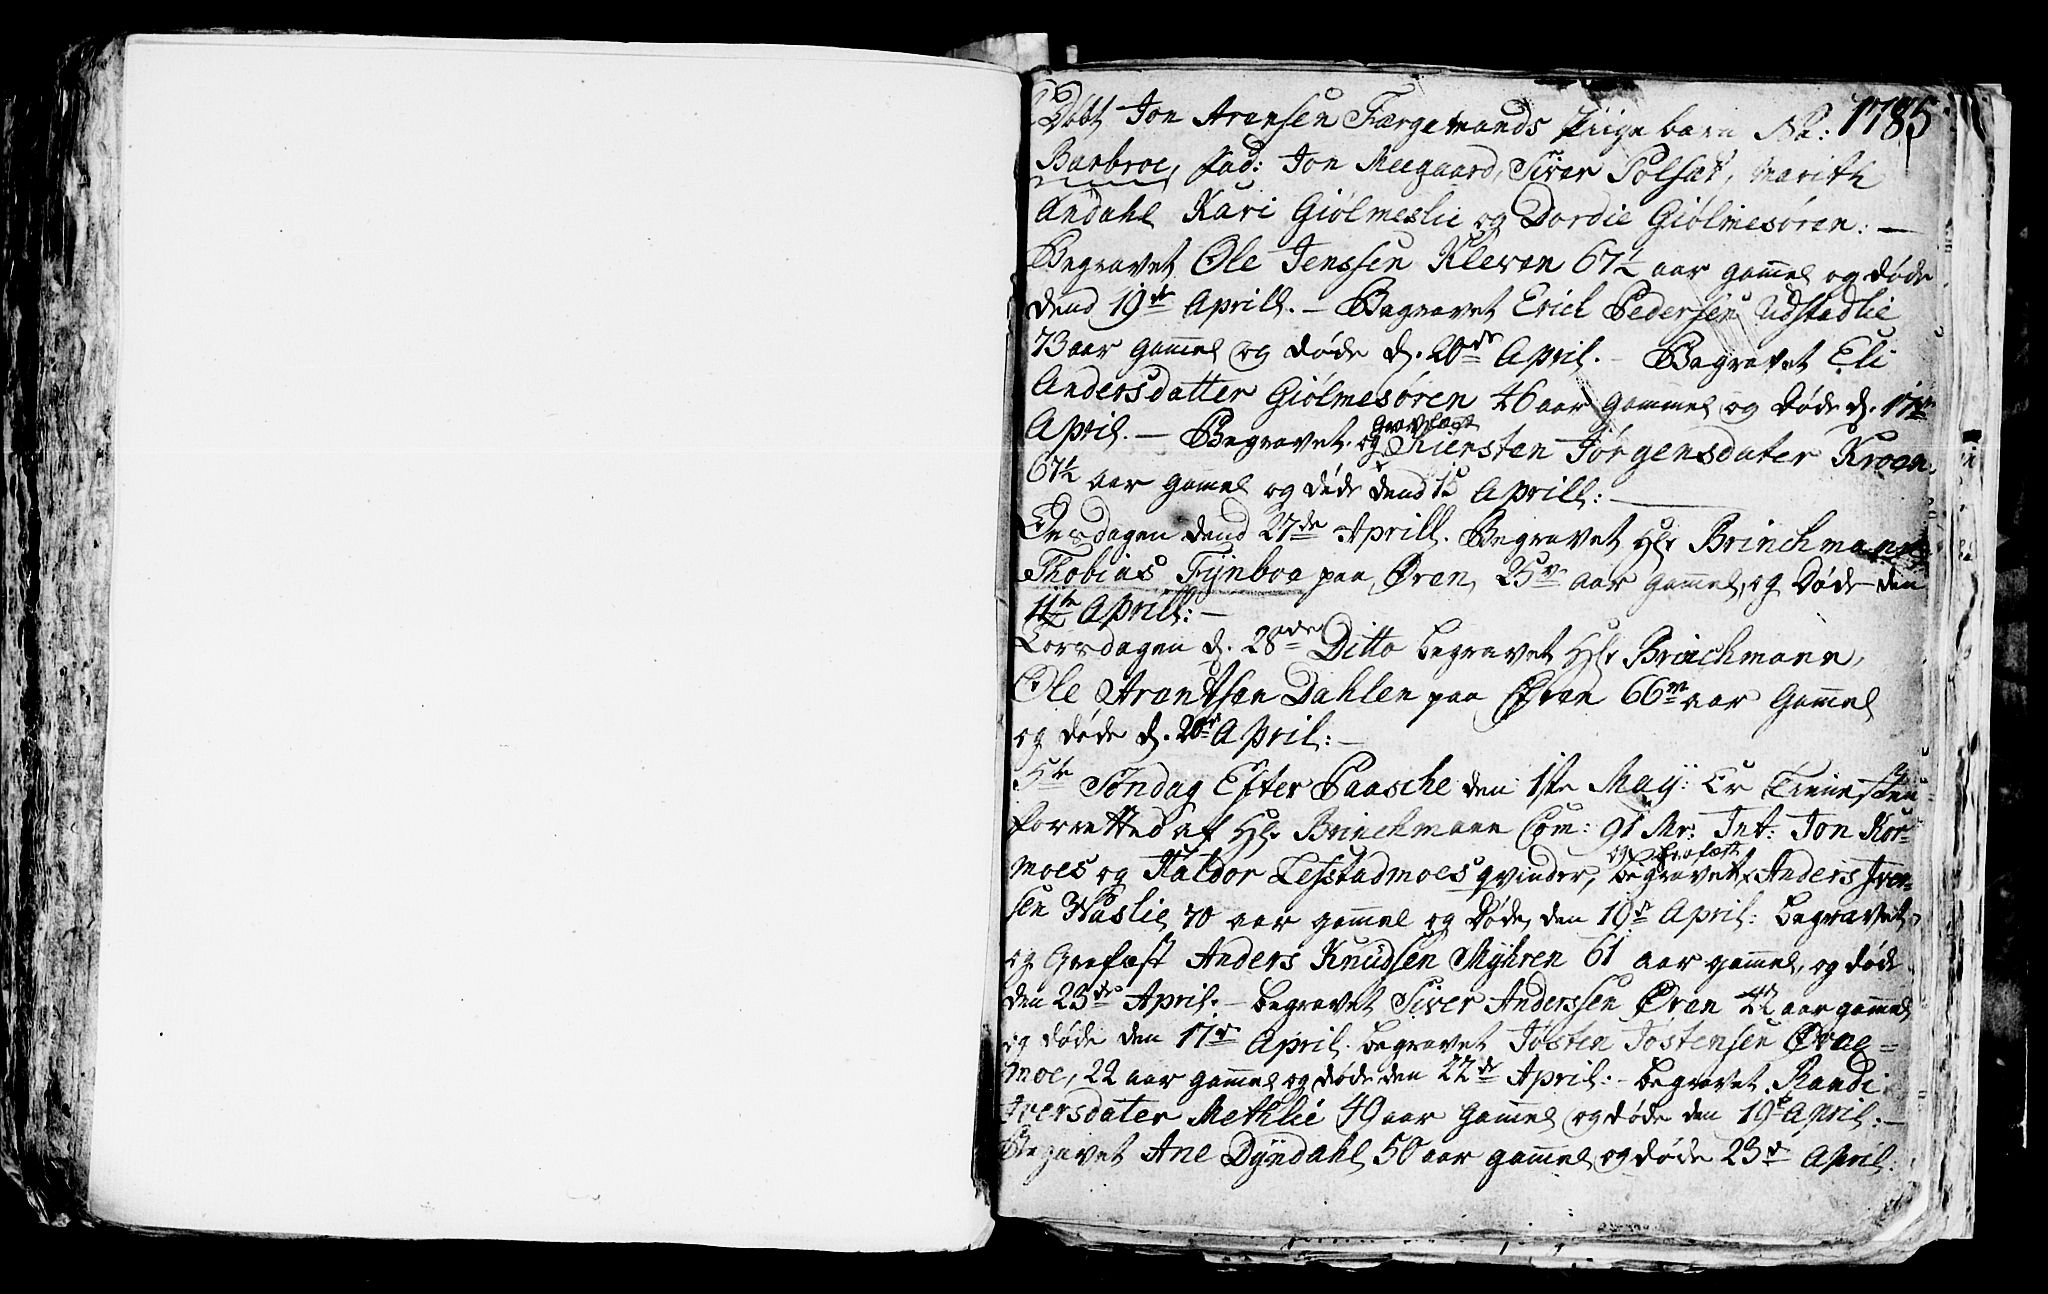 Døbt Jon Arensen Færgemands Piigebarn Na: 1785
Barbroe, Fad: Jon Meegaard, Siver Solsæt, Marith
Andahl Kari Giølmeslie og Dordie Giølmesøren: —
Begravet Ole Jenssen Kleven 67½ aar gammel og døde
dend 19de Aprill. — Begravet Erich Pedersen Udstadlie
73 aar gammel og døde d. 20de April. — Begravet Eli
Andersdatter Giølmesøren 46 aar gammel og døde d. 17de
April. — Begravet og Gravfæst Kiersten Jørgensdater Kroen
67½ aar gammel og døde dend 15 Aprill: —
Onsdagen dend 27de Aprill. Begravet Hr Brinchmann
Thobias Fynboe paa Øren, 25 aar gammel, og døde den
11te Aprill: —
Torsdagen d. 28de Ditto begravet Hr Brinchmann,
Ole Arentsen Dahlen paa Øren 66 aar gammel
og døde d. 20de April: —
5te Søndag Efter Paasche den 1ste May: Er Tienesten
forretted af Hr Brinchmann Com: 91 Mr: Int: Jon Kor-
moes og Haldor Lefstadmoes qvinder, begravet og Grafæst Anders Iver-
sen Waslie 70 aar gammel og døde den 19de April: begravet
og Grafæst Anders Knudsen Myhren 61 aar gammel, og døde
den 23de April. — begravet Siver Anderssen Øran 42 aar gammel
og døde den 17de April. begravet Jøsten Jøstensen Øvae-
moe, 22 aar gammel og døde den 22de April: — begravet Randi
Iversdater Methlie 49 aar gammel og døde den 19de April: —
Begravet Ane Dyndahl 50 aar gammel og døde 23de April: